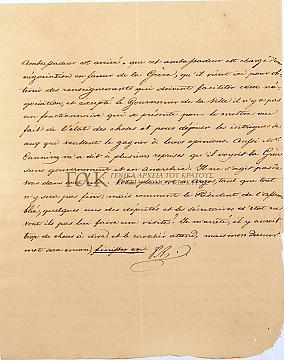 Ambassadeur est arrivé, que cet ambassadeur est chargé d'une
négociation en faveur de la Grèce, qu'il vient ici pour ob-
tenir des renseignements qui doivent faciliter cette né-
gociation, et excepté le Gouverneur de la ville il n'y a pas
un fonctionnaire qui se présente pour le mettre au
fait de l'état des choses et pour déjouer les intrigues de
ceux qui veulent le gagner à leurs opinions. Aussi Mr.
Canning m'a dit à plusieurs reprises qu'il voyait la Grèce
sans gouvernement et en Anarchie. Il ne s'agit pas de
ΓΑΚ ΓΕΝΙΚΑ ΑΡΧΕΙΑ ΤΟΥ ΚΡΑΤΟΥΣ
n'y sera pas fini; mais comme le Président est
quelques uns des députés et des Sénateurs et
ils pas lui faire une visite? Je m'arrête, il y aurait
trop de choses à dire, et le cavalier attend, mais mon dernier
mot sera encore, finissez en.